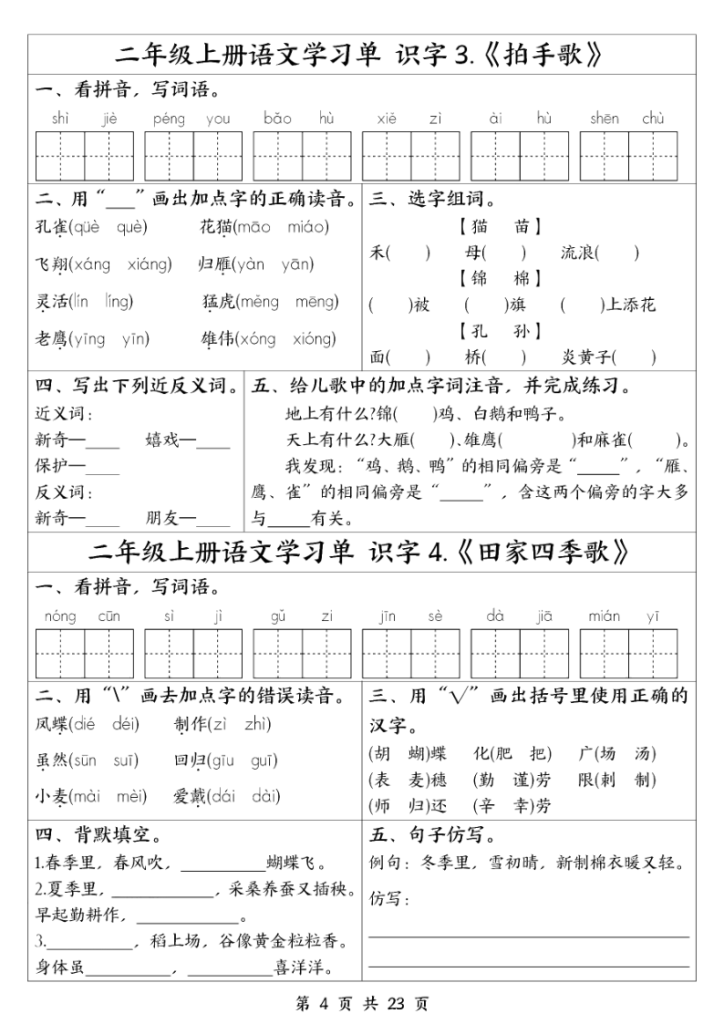 二年级上册语文学习单 识字 3.《拍手歌》
一、看拼音，写词语。
shì jiè péng you bǎo hù xiě zì ài hù shēn chù
二、用“___”画出加点字的正确读音。
孔雀(qüè què) 花猫(māo miáo)
飞翔(xáng xiáng) 归雁(yàn yān)
灵活(lín líng) 猛虎(měng mēng)
老鹰(yīng yīn) 雄伟(xóng xióng)
三、选字组词。
【猫 苗】
禾( ) 母( ) 流浪( )
【锦 棉】
( )被 ( )旗 ( )上添花
【孔 孙】
面( ) 桥( ) 炎黄子( )
四、写出下列近反义词。
近义词：
新奇—____ 嬉戏—____
保护—____
反义词：
新奇—____ 朋友—____
五、给儿歌中的加点字词注音，并完成练习。
地上有什么?锦( )鸡、白鹅和鸭子。
天上有什么?大雁( )、雄鹰( )和麻雀( )。
我发现：“鸡、鹅、鸭”的相同偏旁是“_____”，“雁、
鹰、雀”的相同偏旁是“_____”，含这两个偏旁的字大多
与_____有关。
二年级上册语文学习单 识字 4.《田家四季歌》
一、看拼音，写词语。
nóng cūn sì jì gǔ zi jīn sè dà jiā mián yī
二、用“\”画去加点字的错误读音。
凤蝶(dié déi) 制作(zì zhì)
虽然(sūn suī) 回归(gīu guī)
小麦(mài mèi) 爱戴(dái dài)
三、用“√”画出括号里使用正确的
汉字。
(胡 蝴)蝶 化(肥 把) 广(场 汤)
(表 麦)穗 (勤 谨)劳 限(刺 制)
(师 归)还 (辛 幸)劳
四、背默填空。
1.春季里，春风吹，__________蝴蝶飞。
2.夏季里，____________，采桑养蚕又插秧。
早起勤耕作，____________。
3.__________，稻上场，谷像黄金粒粒香。
身体虽__________，__________喜洋洋。
五、句子仿写。
例句：冬季里，雪初晴，新制棉衣暖又轻。
仿写：
第 4 页 共 23 页